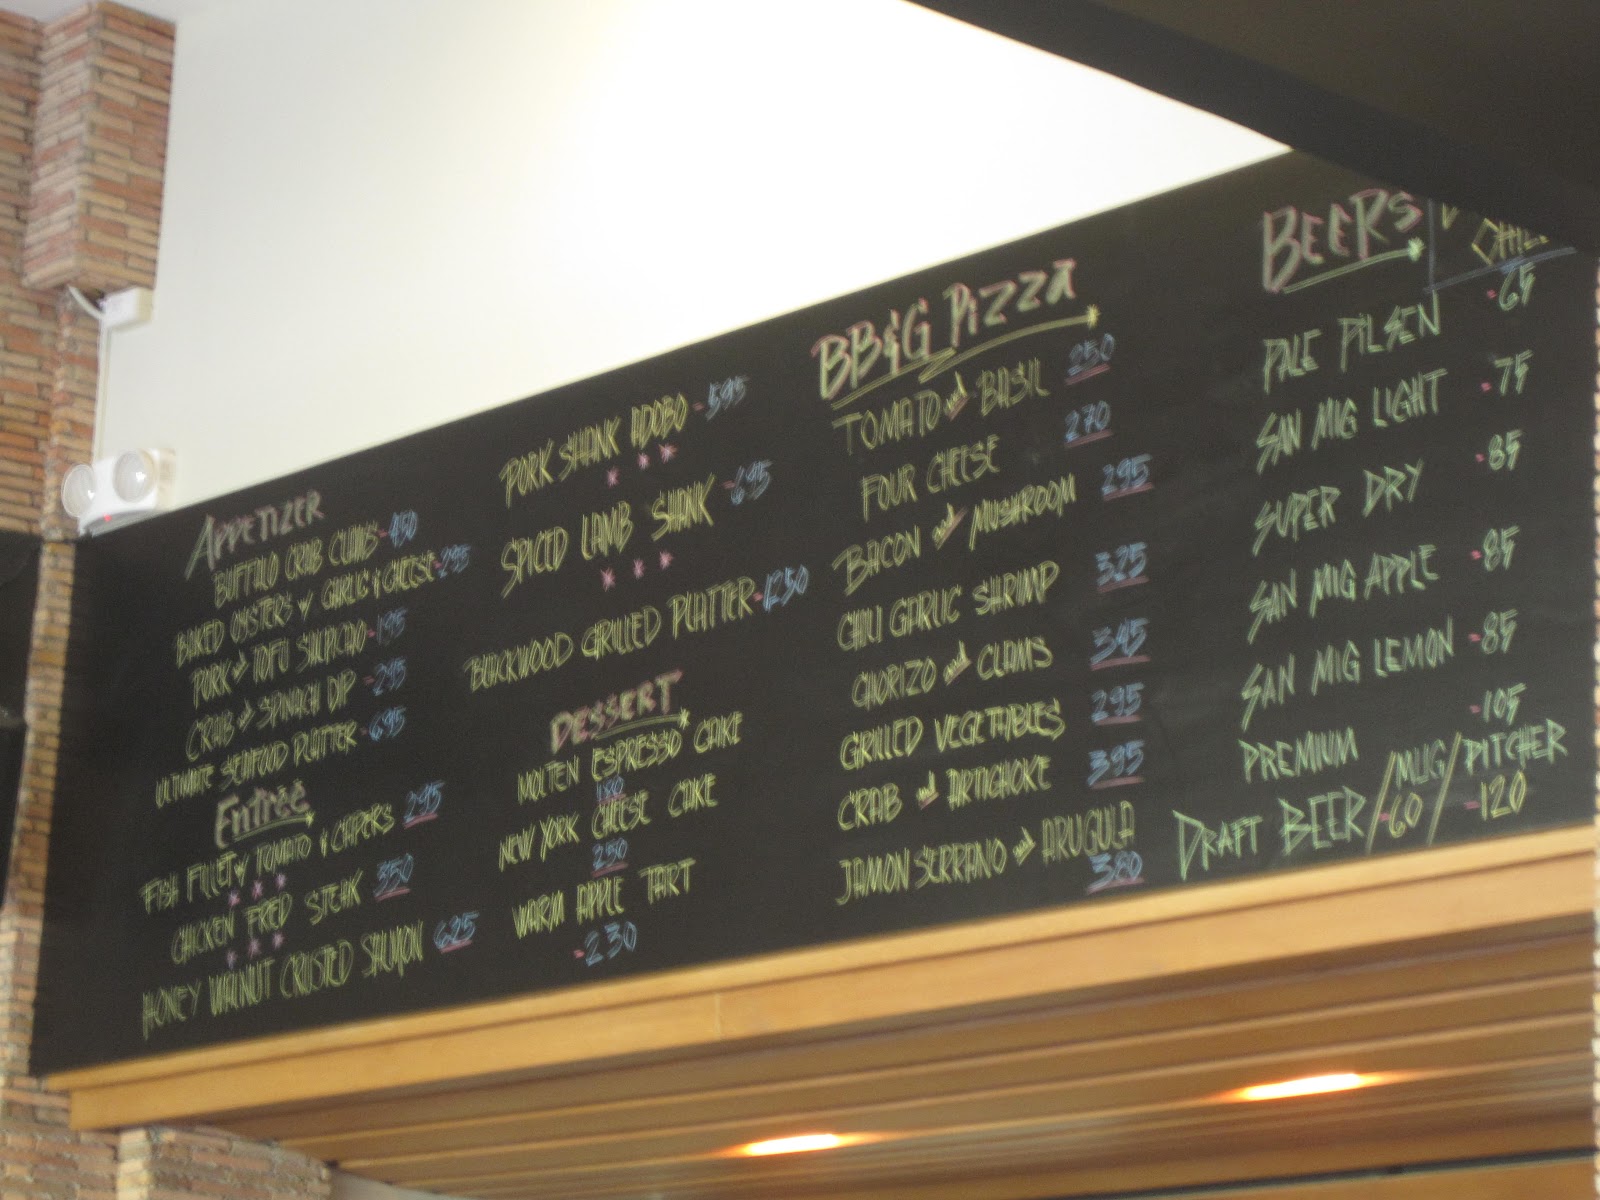 APPETIZER
BUFFALO CRAB CLAWS - 450
BAKED OYSTERS W/ GARLIC & CHEESE - 295
PORK TOFU SALPICAO - 195
CRAB SPINACH DIP - 295
ULTIMATE SEAFOOD PLATTER - 695
Entrée
FISH FILLET W/ TOMATO & CAPERS 295
CHICKEN FRIED STEAK 350
HONEY WALNUT CRUSTED SALMON 625
PORK SHANK ADOBO - 595
SPICED LAMB SHANK - 695
BACKWOOD GRILLED PLATTER - 1250
DESSERT
MOLTEN ESPRESSO CAKE
180
NEW YORK CHEESE CAKE
250
WARM APPLE TART
- 230
BB&G PIZZA
TOMATO and BASIL 250
FOUR CHEESE 270
BACON and MUSHROOM 295
CHILI GARLIC SHRIMP 325
CHORIZO and CLAMS 345
GRILLED VEGETABLES 295
CRAB and ARTICHOKE 395
JAMON SERRANO and ARUGULA
380
BEERS
PALE PILSEN - 65
SAN MIG LIGHT - 75
SUPER DRY - 85
SAN MIG APPLE - 85
SAN MIG LEMON - 85
PREMIUM - 105
DRAFT BEER / MUG - 60 / PITCHER - 120